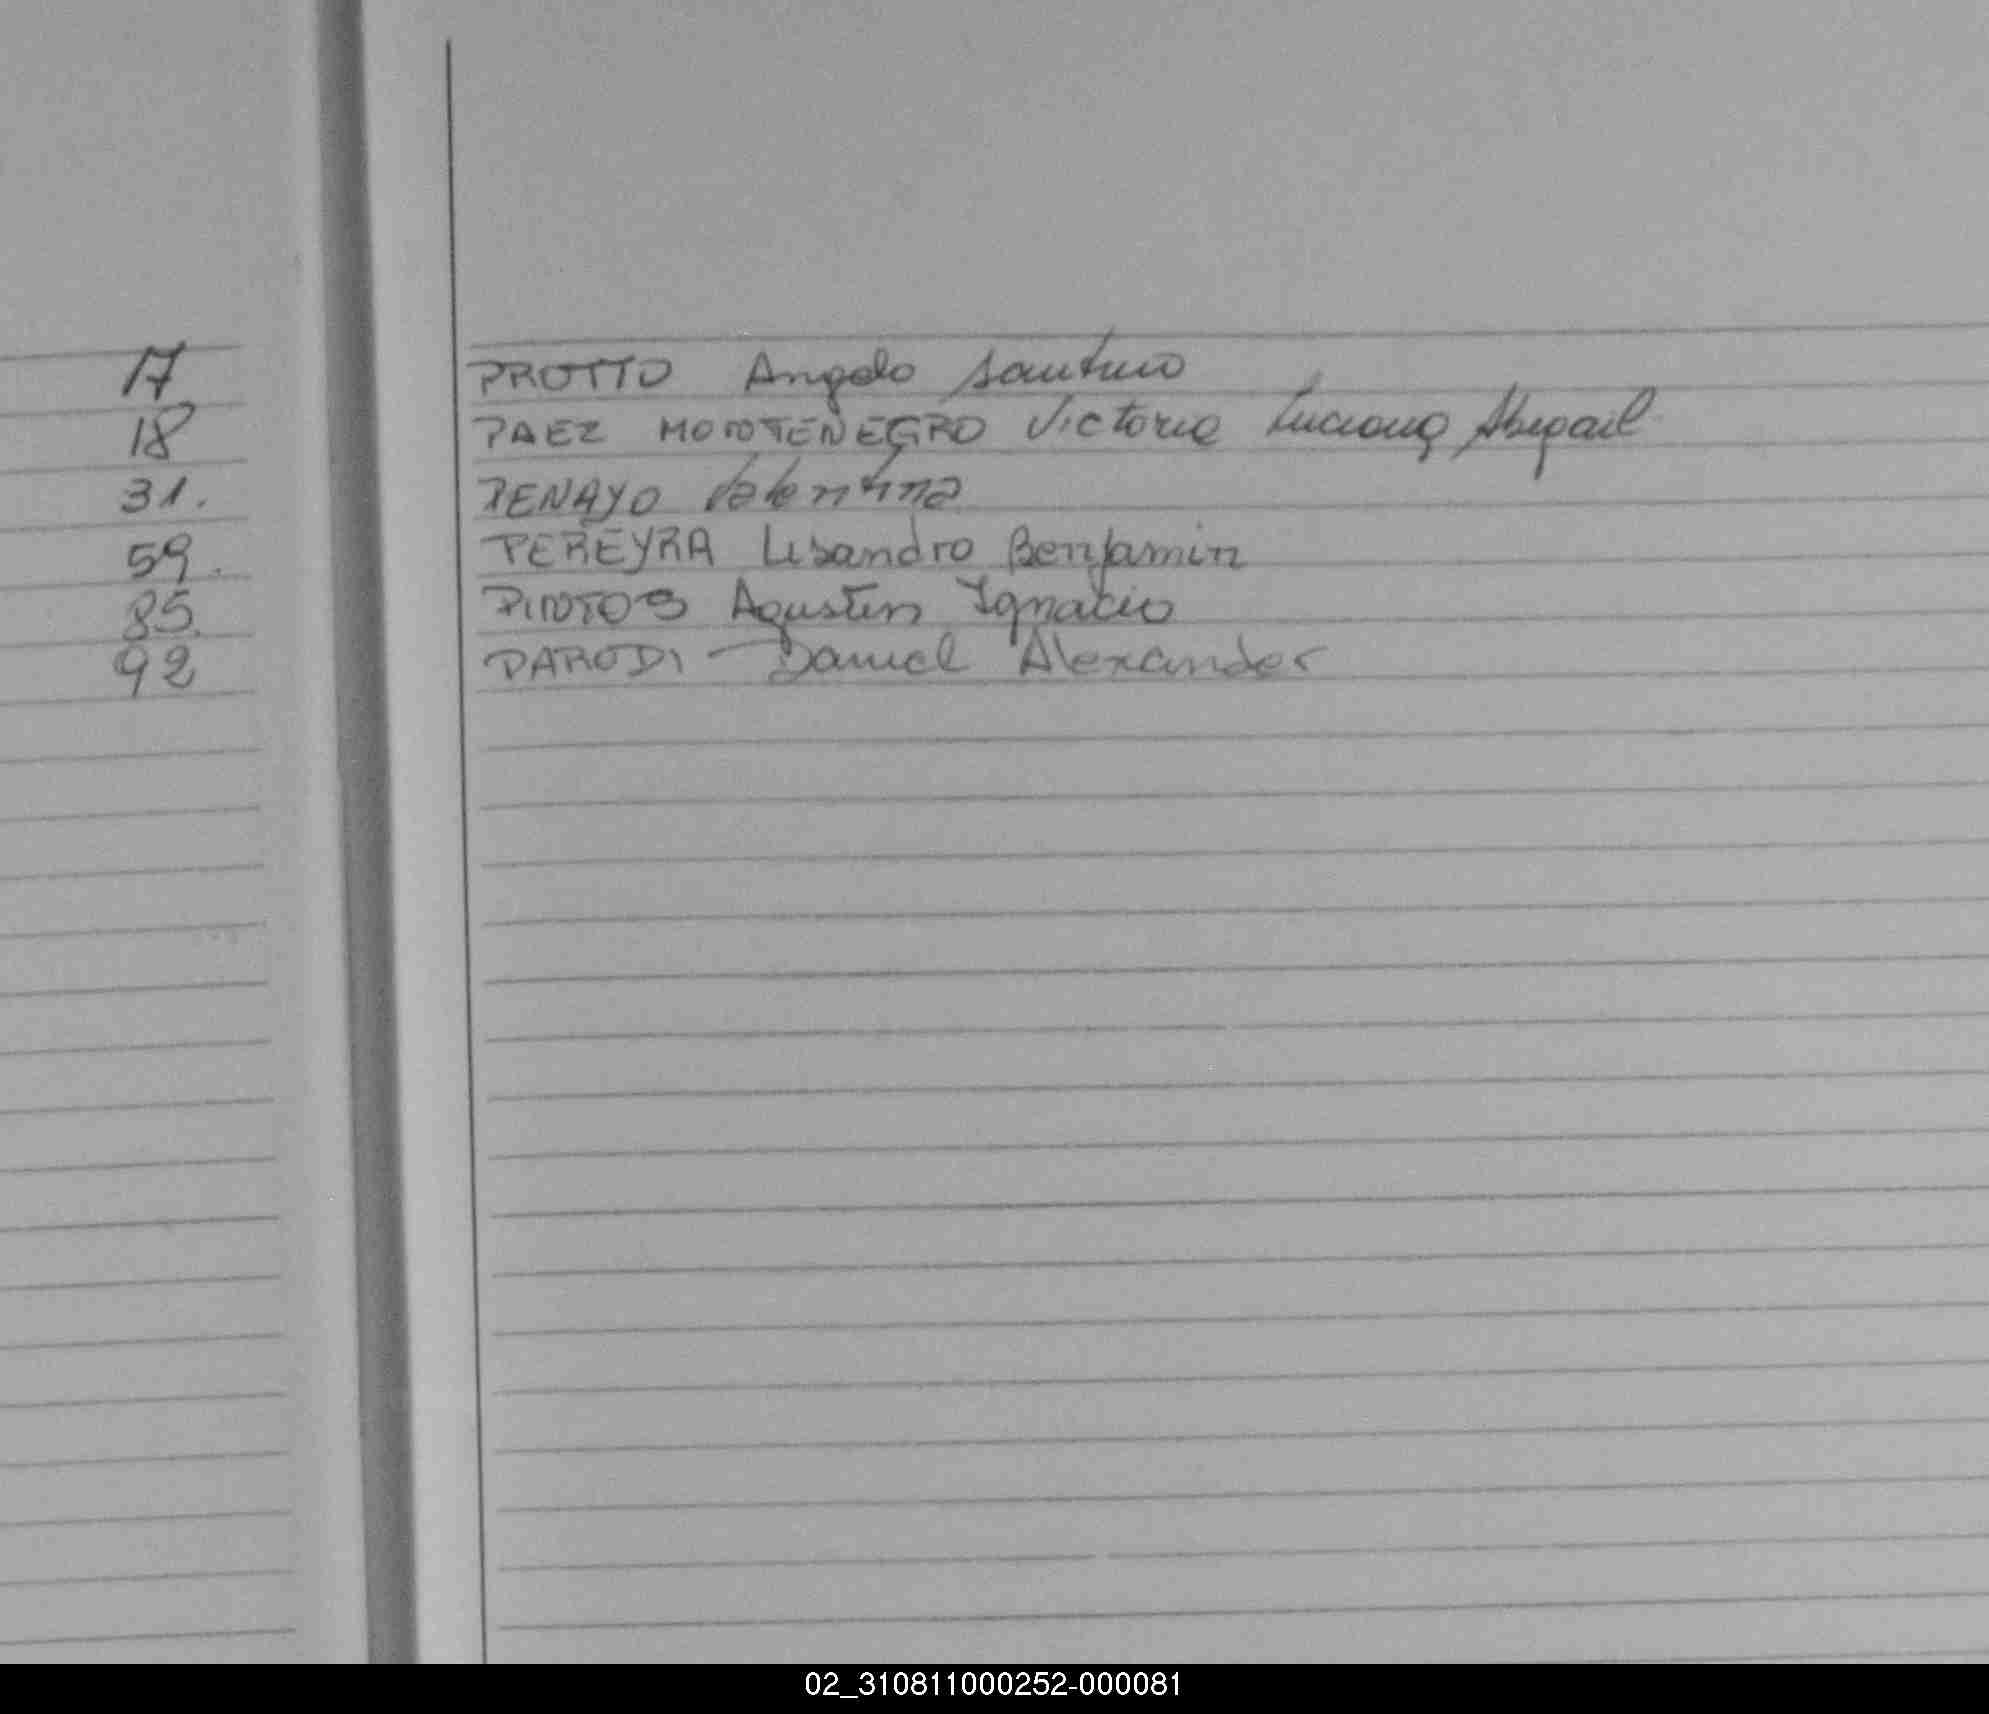 17 PROTTO Angelo Santino
18 PAEZ MONTENEGRO Victoria Luciana Abigail
31. PENAYO Valentina
59. PEREYRA Lisandro Benjamin
85. PINTOS Agustin Ignacio
92 PARODI - Daniel Alexander
02_310811000252-000081